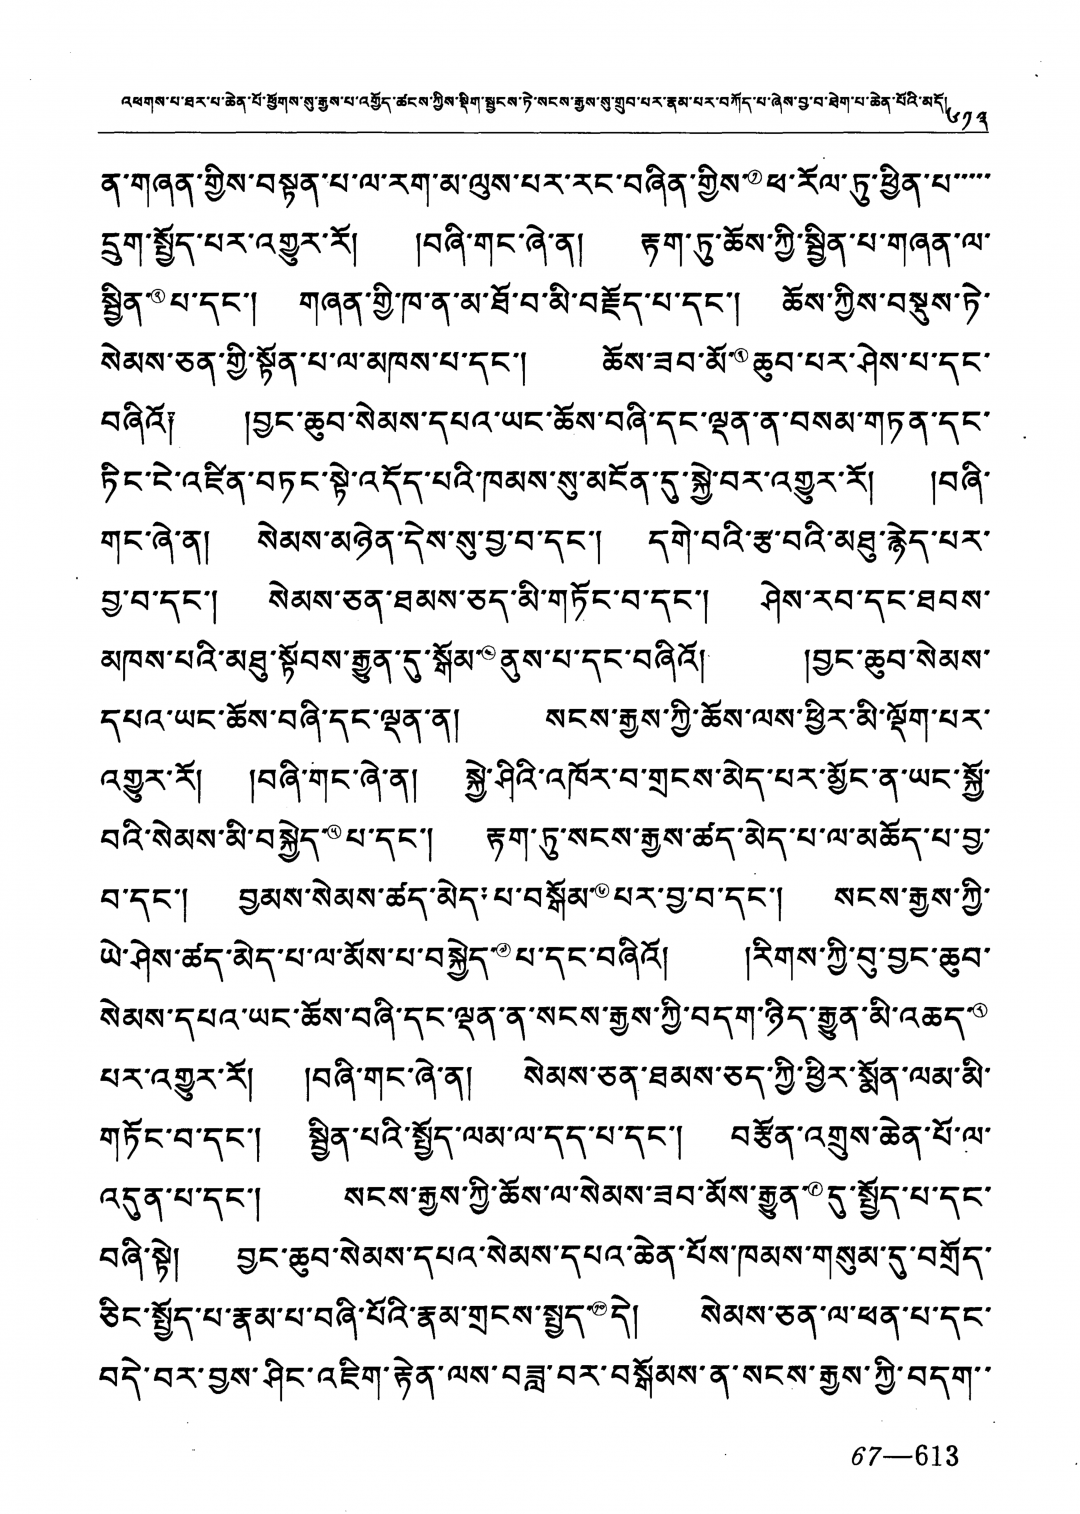 འཕགས་པ་ཐར་པ་ཆེན་པོ་ཕྱོགས་སུ་རྒྱས་པ་འགྱོད་ཚངས་ཀྱིས་སྡིག་སྦྱངས་ཏེ་སངས་རྒྱས་སུ་གྲུབ་པར་རྣམ་པར་བཀོད་པ་ཞེས་བྱ་བ་ཐེག་པ་ཆེན་པོའི་མདོ།
༦༡༣
ན་གཞན་གྱིས་བསྟན་པ་ལ་རག་མ་ལུས་པར་རང་བཞིན་གྱིས་①ཕ་རོལ་ཏུ་ཕྱིན་པ་་་་་་
དྲུག་སྤྱོད་པར་འགྱུར་རོ། །བཞི་གང་ཞེ་ན། རྟག་ཏུ་ཆོས་ཀྱི་སྦྱིན་པ་གཞན་ལ་
སྦྱིན་②པ་དང་། གཞན་གྱི་ཁ་ན་མ་ཐོ་བ་མི་བརྗོད་པ་དང་། ཆོས་ཀྱིས་བསྡུས་ཏེ་
སེམས་ཅན་གྱི་སྟོན་པ་ལ་མཁས་པ་དང་། ཆོས་ཟབ་མོ་③ཆུབ་པར་ཤེས་པ་དང་
བཞིའོ། །བྱང་ཆུབ་སེམས་དཔའ་ཡང་ཆོས་བཞི་དང་ལྡན་ན་བསམ་གཏན་དང་
ཏིང་ངེ་འཛིན་བཏང་སྟེ་འདོད་པའི་ཁམས་སུ་མངོན་དུ་སྐྱེ་བར་འགྱུར་རོ། །བཞི་
གང་ཞེ་ན། སེམས་མཉེན་དེས་སུ་བྱ་བ་དང་། དགེ་བའི་རྩ་བའི་མཐུ་རྙེད་པར་
བྱ་བ་དང་། སེམས་ཅན་ཐམས་ཅད་མི་གཏོང་བ་དང་། ཤེས་རབ་དང་ཐབས་
མཁས་པའི་མཐུ་སྟོབས་རྒྱུན་དུ་སྒོམ་④ནུས་པ་དང་བཞིའོ། །བྱང་ཆུབ་སེམས་
དཔའ་ཡང་ཆོས་བཞི་དང་ལྡན་ན། སངས་རྒྱས་ཀྱི་ཆོས་ལས་ཕྱིར་མི་ལྡོག་པར་
འགྱུར་རོ། །བཞི་གང་ཞེ་ན། སྐྱེ་ཤིའི་འཁོར་བ་གྲངས་མེད་པར་མྱོང་ན་ཡང་སྐྱོ་
བའི་སེམས་མི་བསྐྱེད་⑤པ་དང་། རྟག་ཏུ་སངས་རྒྱས་ཚད་མེད་པ་ལ་མཆོད་པ་བྱ་
བ་དང་། བྱམས་སེམས་ཚད་མེད་པ་བསྒོམ་⑥པར་བྱ་བ་དང་། སངས་རྒྱས་ཀྱི་
ཡེ་ཤེས་ཚད་མེད་པ་ལ་མོས་པ་བསྐྱེད་⑦པ་དང་བཞིའོ། །རིགས་ཀྱི་བུ་བྱང་ཆུབ་
སེམས་དཔའ་ཡང་ཆོས་བཞི་དང་ལྡན་ན་སངས་རྒྱས་ཀྱི་བདག་ཉིད་རྒྱུན་མི་འཆད་⑧
པར་འགྱུར་རོ། །བཞི་གང་ཞེ་ན། སེམས་ཅན་ཐམས་ཅད་ཀྱི་ཕྱིར་སྨོན་ལམ་མི་
གཏོང་བ་དང་། སྦྱིན་པའི་སྤྱོད་ལམ་ལ་དད་པ་དང་། བརྩོན་འགྲུས་ཆེན་པོ་ལ་
འདུན་པ་དང་། སངས་རྒྱས་ཀྱི་ཆོས་ལ་སེམས་ཟབ་མོས་རྒྱུན་⑨དུ་སྤྱོད་པ་དང་
བཞི་སྟེ། བྱང་ཆུབ་སེམས་དཔའ་སེམས་དཔའ་ཆེན་པོས་ཁམས་གསུམ་དུ་བགྲོད་
ཅིང་སྤྱོད་པ་རྣམ་པ་བཞི་པོའི་རྣམ་གྲངས་སྤྱད་⑩དེ། སེམས་ཅན་ལ་ཕན་པ་དང་
བདེ་བར་བྱས་ཤིང་འཇིག་རྟེན་ལས་བཟླ་བར་བསྒོམས་ན་སངས་རྒྱས་ཀྱི་བདག་་
67—613